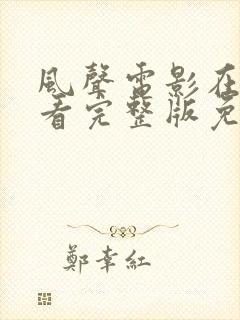 風聲電影在
看完整版免
鄭幸紅